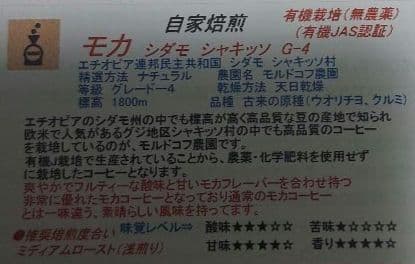 自家焙煎
有機栽培(無農薬)
(有機JAS認証)
モカ シダモ シャキッソ G-4
エチオピア連邦民主共和国 シダモ シャキッソ村
精選方法 ナチュラル 農園名 モルドコフ農園
等級 グレードー4 乾燥方法 天日乾燥
標高 1800m 品種 古来の原種(ウオリチョ、クルミ)
エチオピアのシダモ州の中でも標高が高く高品質な豆の産地で知られ
欧米で人気があるグジ地区シャキッソ村の中でも高品質のコーヒー
を栽培しているのが、モルドコフ農園です。
有機J栽培で生産されていることから、農薬・化学肥料を使用せず
に栽培したコーヒーとなります。
爽やかでフルティーな酸味と甘いモカフレーバーを合わせ持つ
非常に優れたモカコーヒーとなっており通常のモカコーヒー
とは一味違う、素晴らしい風味を持ってます。
●推奨焙煎度合い 味覚レベル⇒ 酸味★★★★☆ 苦味★☆☆☆☆
ミディアムロースト(浅煎り) 甘味★★★★☆ 香り★★★★☆